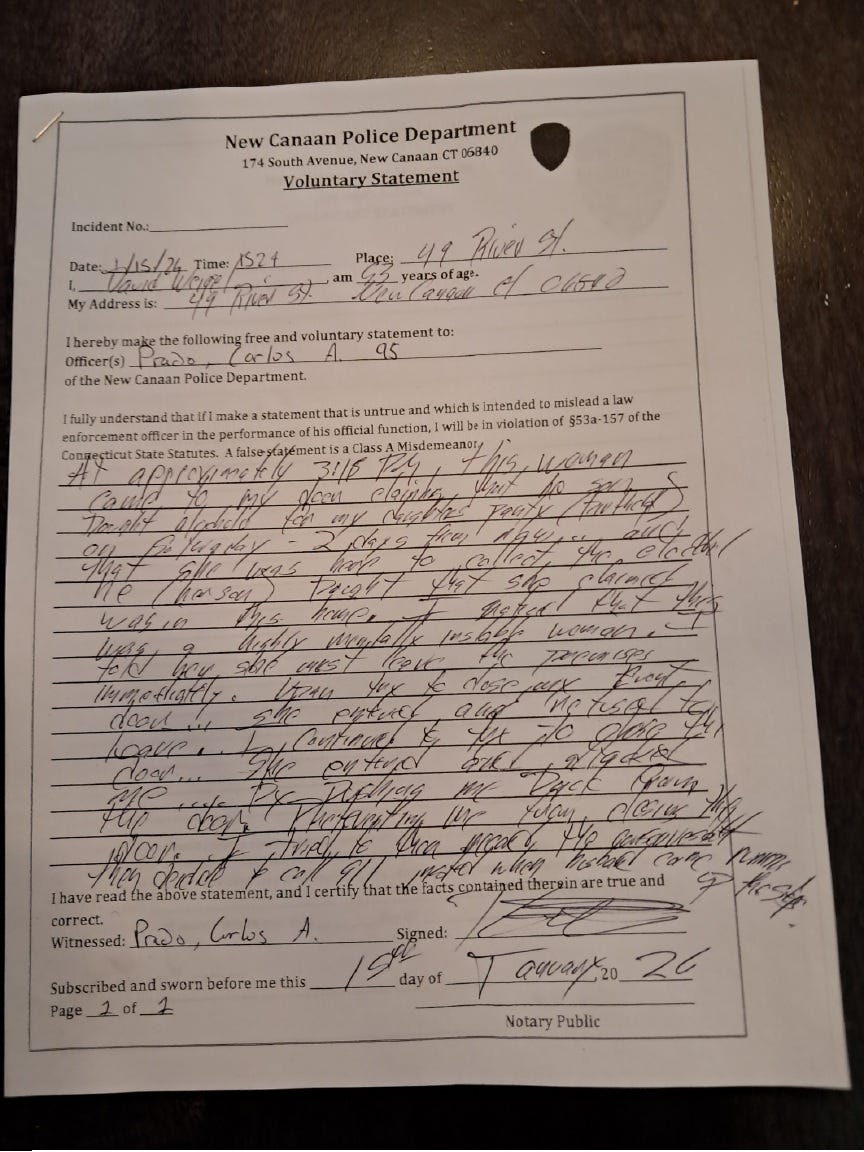 New Canaan Police Department
174 South Avenue, New Canaan CT 06840
Voluntary Statement
Incident No.:
Date: 1/15/26 Time: 1524 Place: 49 River St.
I, David , am years of age.
My Address is: 49 River St. New Canaan Ct
I hereby make the following free and voluntary statement to:
Officer(s) Prado, Carlos A. 95
of the New Canaan Police Department.
I fully understand that if I make a statement that is untrue and which is intended to mislead a law
enforcement officer in the performance of his official function, I will be in violation of §53a-157 of the
Connecticut State Statutes. A false statement is a Class A Misdemeanor
At approximately 3:15 PM, this woman
came to my door claiming that
bought alcohol for my party
on Saturday - 2 days from now... and
that she was here to collect the alcohol
He (her son) bought that she claimed
was in this house. I that this
was a highly mentally woman. I
told her she must leave the premises
immediately. Upon to close front
door... she entered and refused to
leave. I continued to to close the
door... She entered and attacked
me .... pushing me back from
the door. Preventing me from closing this
door. I tried to then the
then decided to call 911 when husband came running
up the steps.
I have read the above statement, and I certify that the facts contained therein are true and
correct.
Witnessed: Prado, Carlos A. Signed:
Subscribed and sworn before me this 15th day of January, 20 26
Page 1 of 1
Notary Public